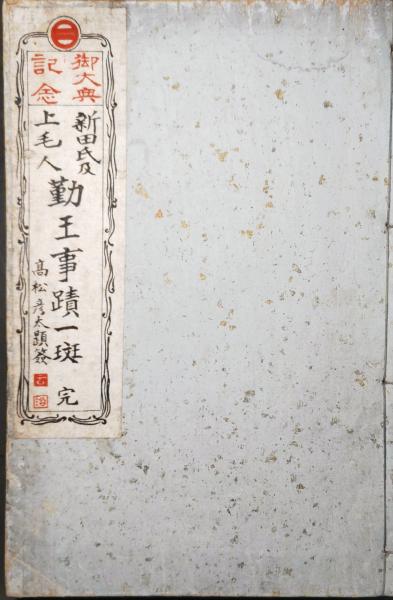 御大典
記念
新田氏及
上毛人
勤王事蹟一斑 完
高松彦太顕簽